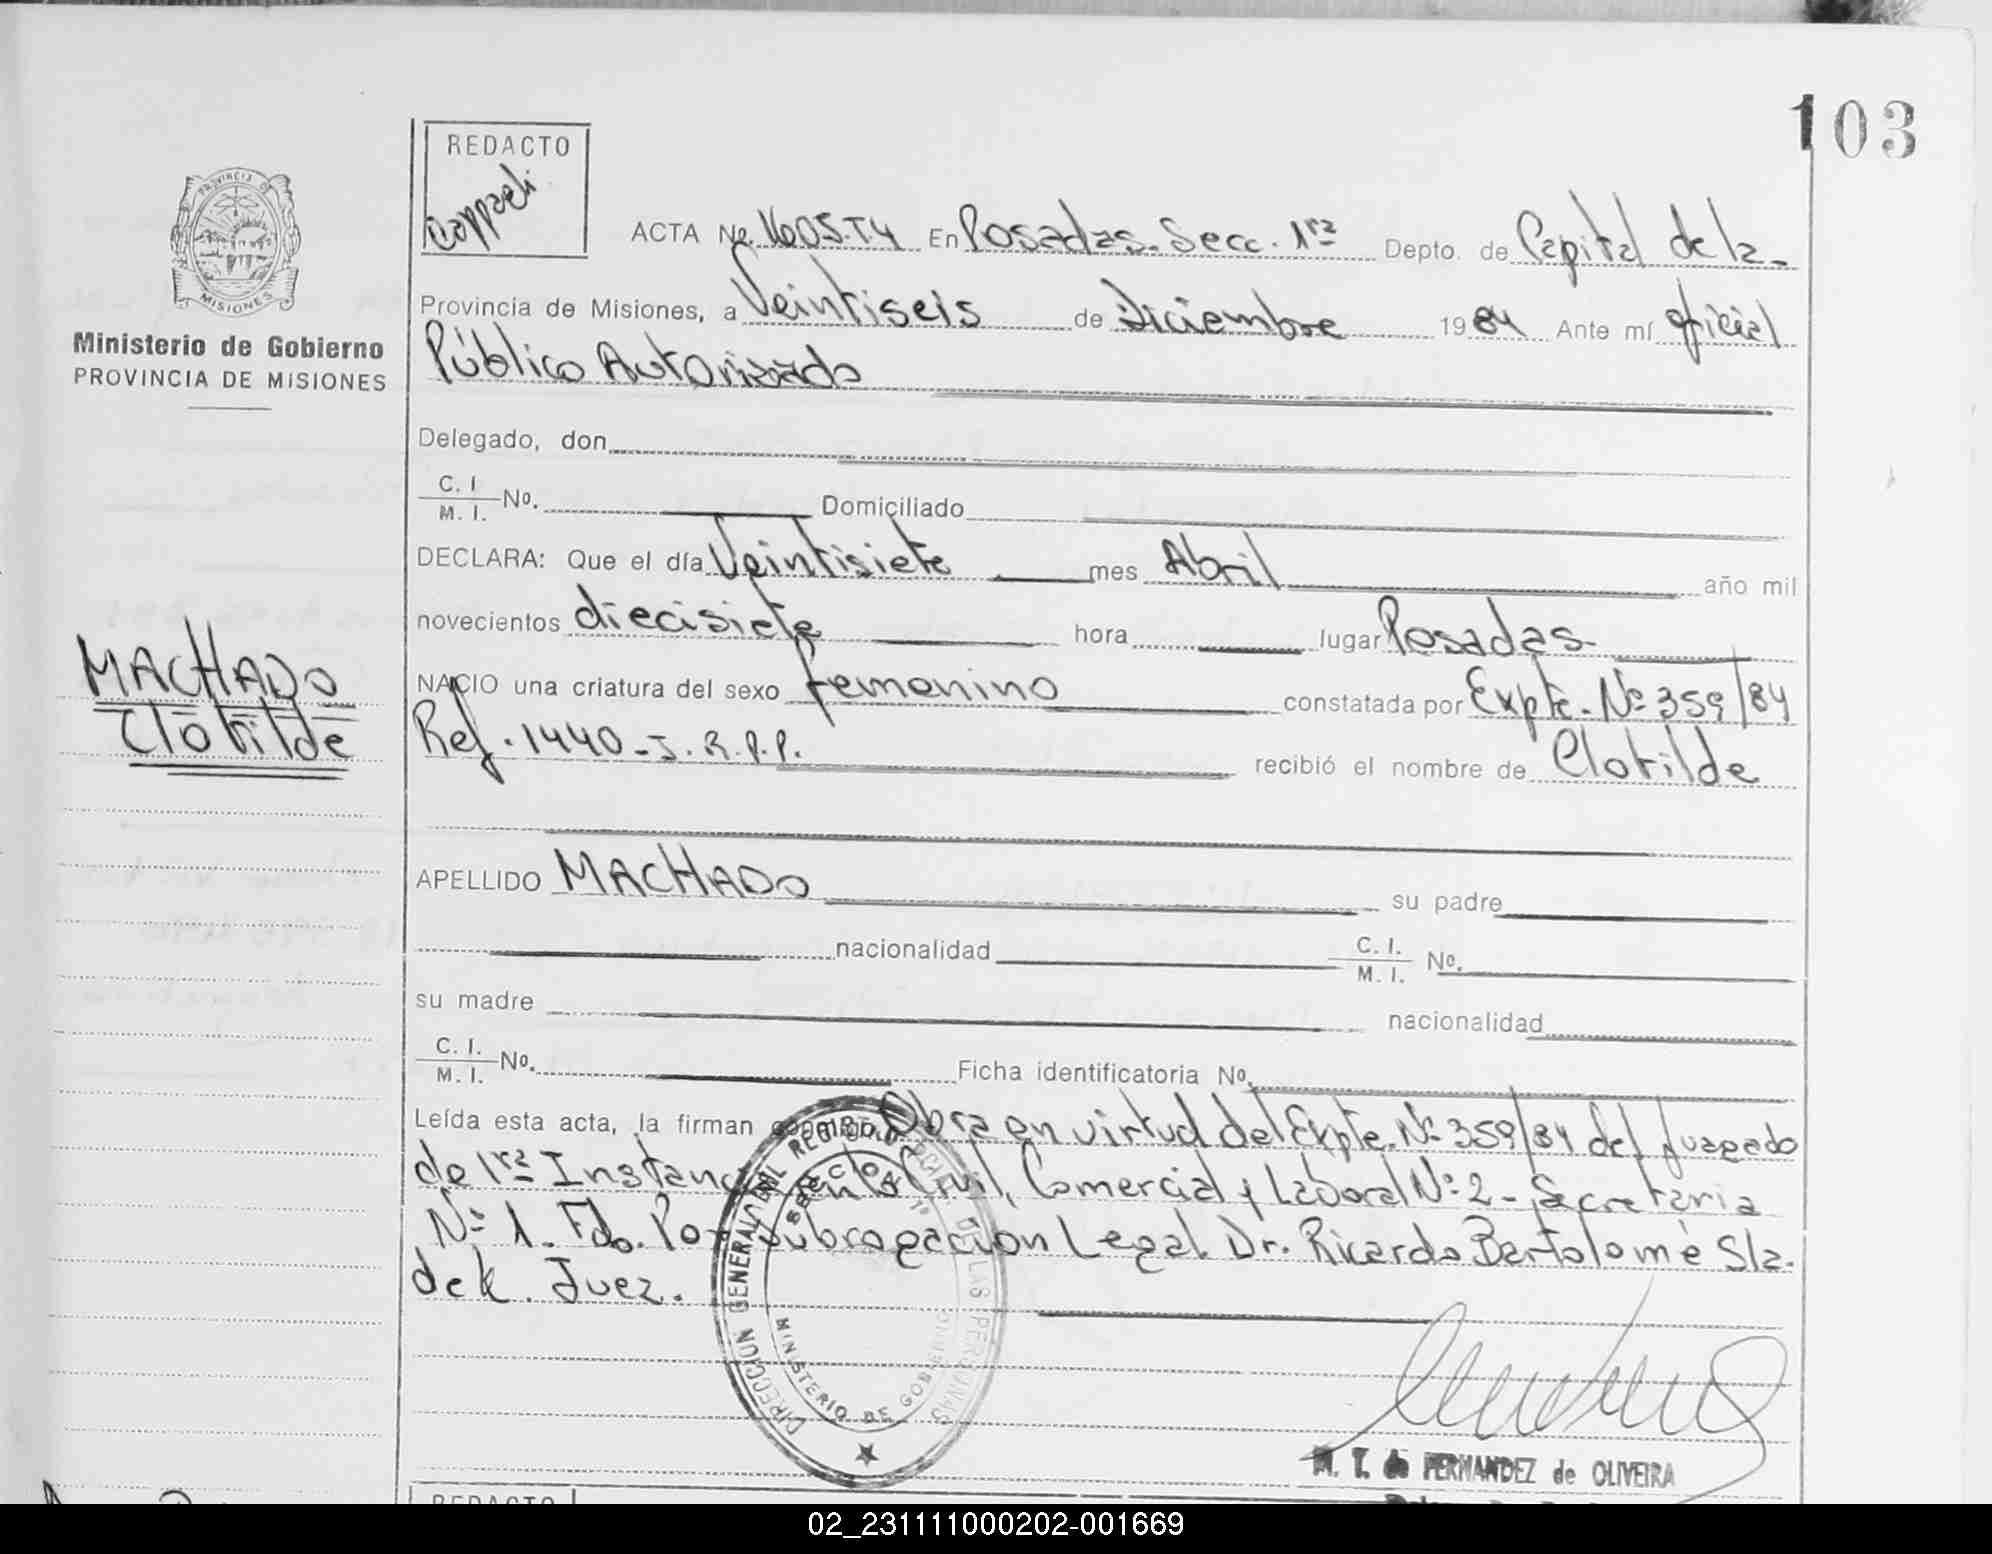 103
REDACTO
PROVINCIA DE
MISIONES
Ministerio de Gobierno
PROVINCIA DE MISIONES
ACTA No. 1605.T4 En Posadas. Secc. 1ra Depto. de Capital de la
Provincia de Misiones, a Veintiseis de Diciembre 1984 Ante mí oficial
Público Autorizado
Delegado, don
C. I. / M. I. No. Domiciliado
DECLARA: Que el día Veintisiete mes Abril año mil
novecientos diecisiete hora lugar Posadas
MACHADO
Clotilde
NACIO una criatura del sexo femenino constatada por Expte. Nº 359/84
Ref. 1440-J.R.P.P. recibió el nombre de Clotilde
APELLIDO MACHADO su padre
nacionalidad C. I. / M. I. No.
su madre nacionalidad
C. I. / M. I. No. Ficha identificatoria No.
Leída esta acta, la firman conmigo Obra en virtud del Expte. Nº 359/84 del Juzgado
de 1ra Instancia en lo Civil, Comercial y Laboral Nº 2 - Secretaria
Nº 1. Fdo. Por Subrogación Legal. Dr. Ricardo Bartolomé Sla-
dek. Juez.
DIRECCION GENERAL DEL REGISTRO DE LAS PERSONAS
SECCION 1ª
MINISTERIO DE GOBIERNO
FERNANDEZ de OLIVEIRA
REDACTO
02_231111000202-001669